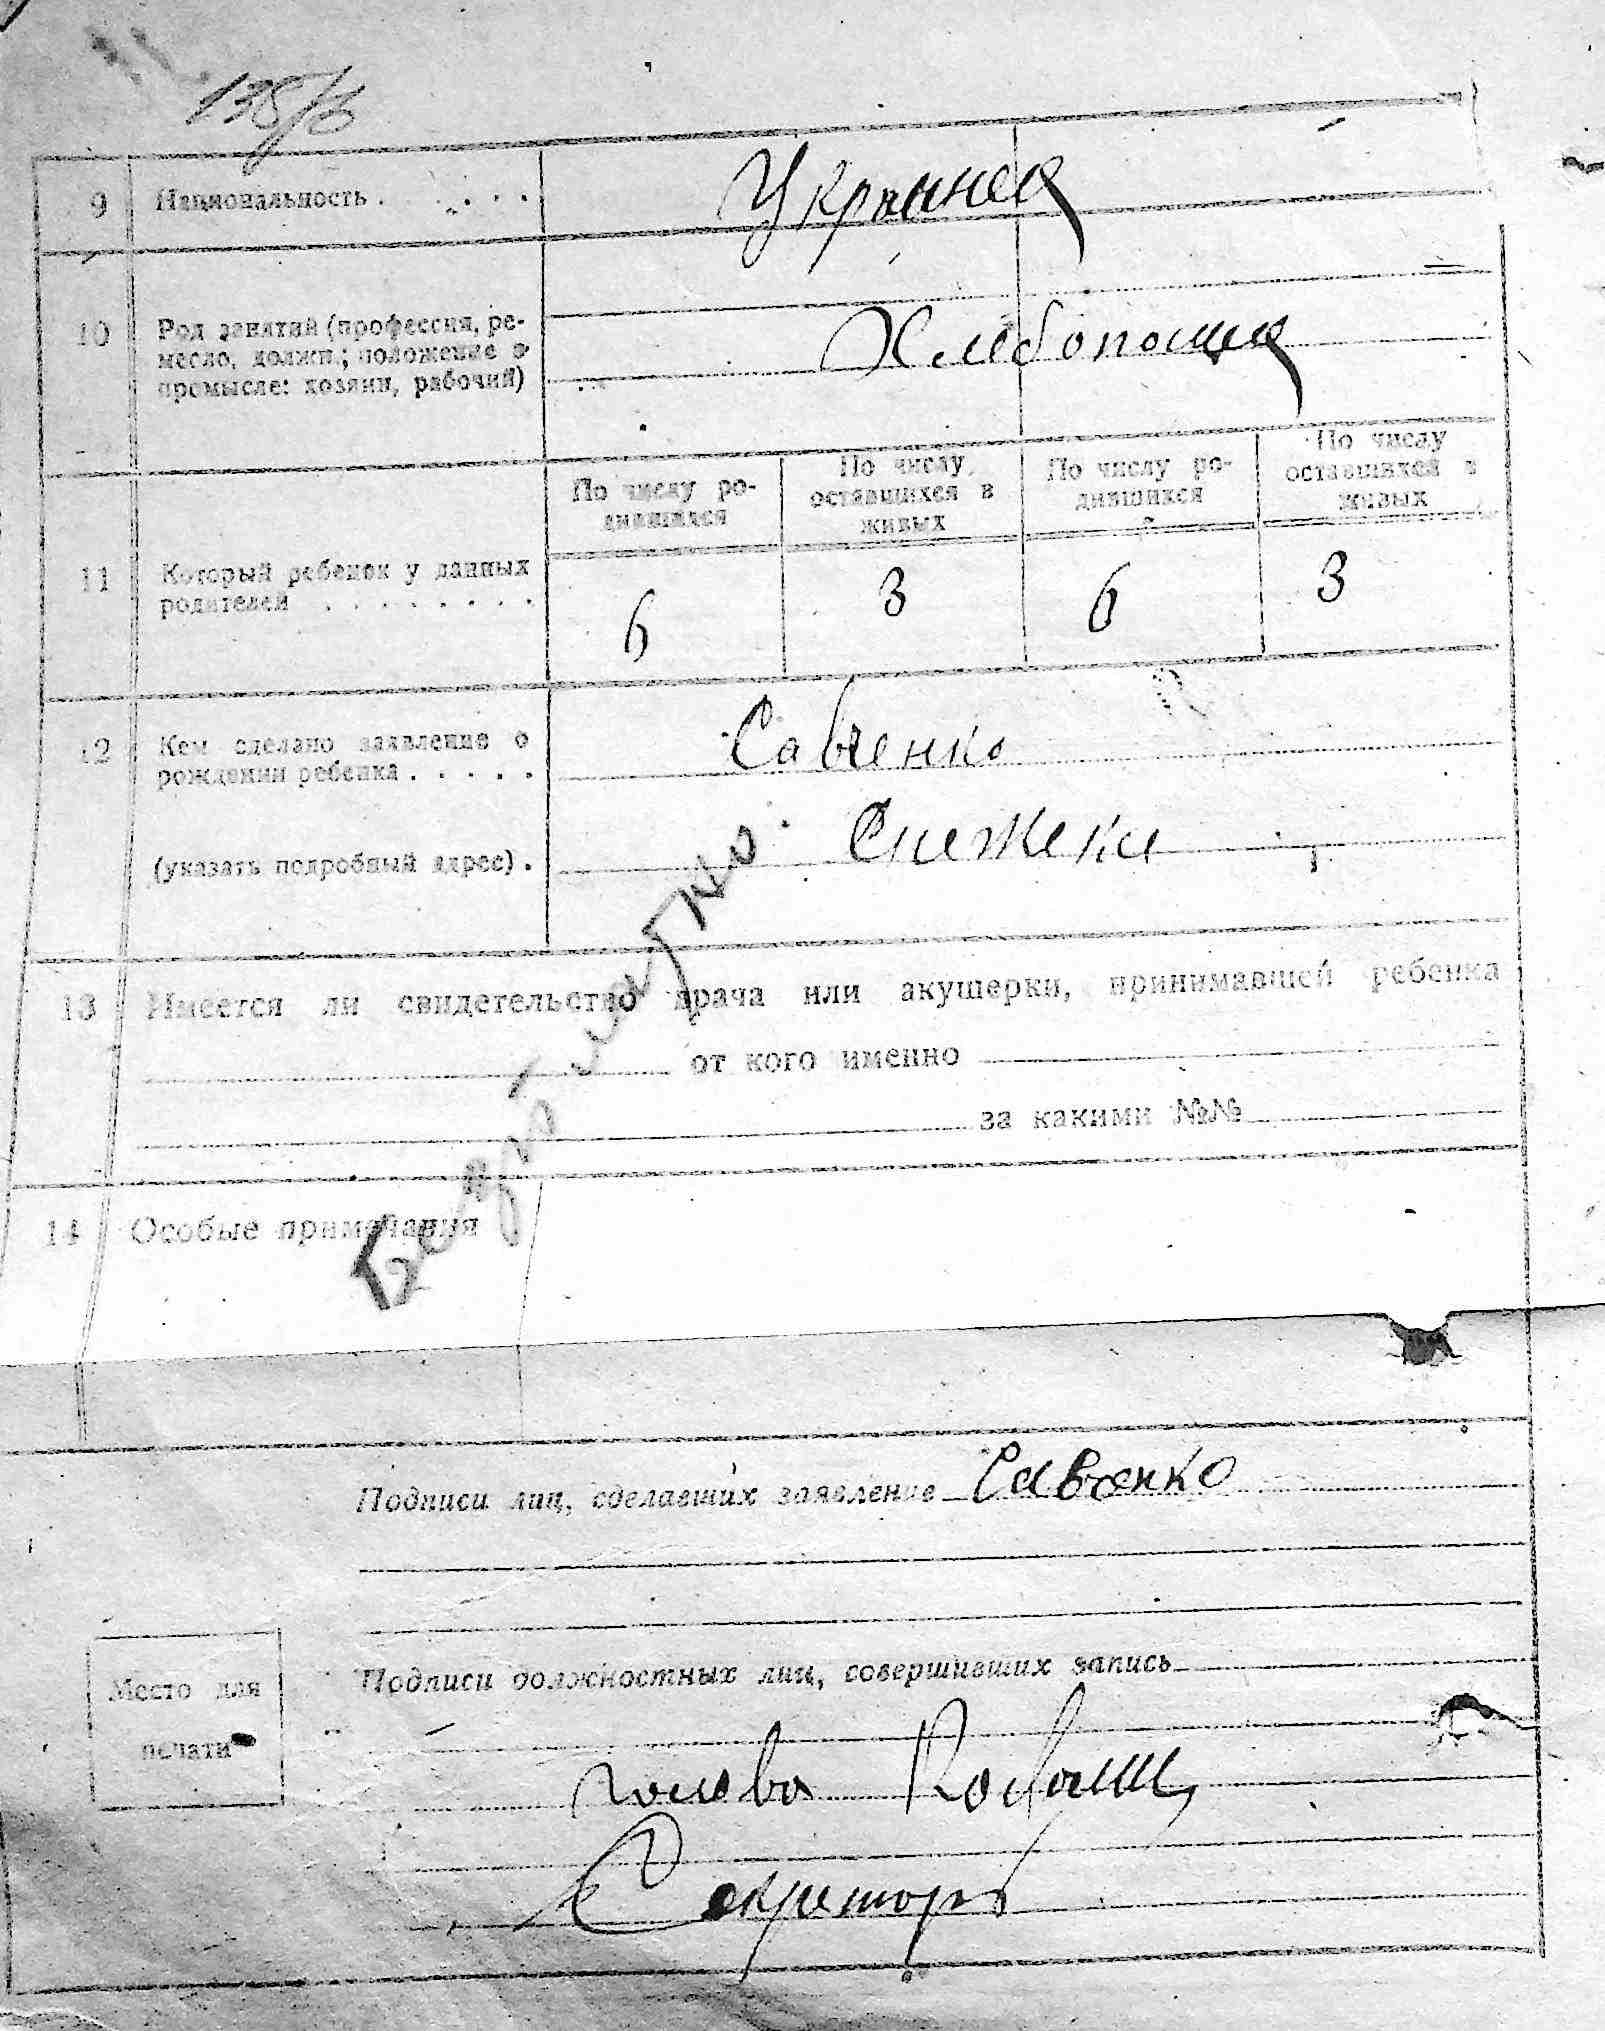 138/6
9 Национальность . . . . . . Украинец
10 Род занятий (профессия, ре-
месло, должн.; положение в
промысле: хозяин, рабочий)
Хлебопашец
По числу ро-
дившихся
По числу
оставшихся в
живых
По числу ро-
дившихся
По числу
оставшихся в
живых
11 Который ребенок у данных
родителей . . . . . . . .
6 3 6 3
12 Кем сделано заявление о
рождении ребенка . . . . .
Савченко
(указать подробный адрес) . Снежеки
13 Имеется ли свидетельство врача или акушерки, принимавшей ребенка
от кого именно
за какими №№
14 Особые примечания
Подписи лиц, сделавших заявление Савченко
Подписи должностных лиц, совершивших запись
Место для
печати
голова
Секреторь